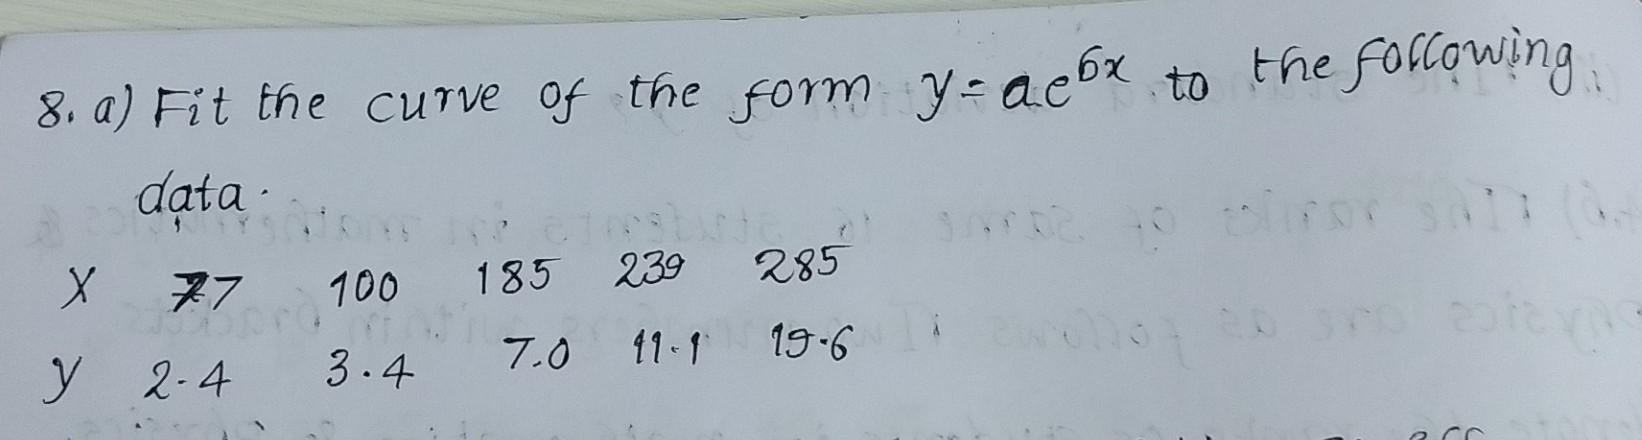 8. a) Fit the curve of the form y = ae^bx to the following
data.
X 77 100 185 239 285
y 2.4 3.4 7.0 11.1 19.6